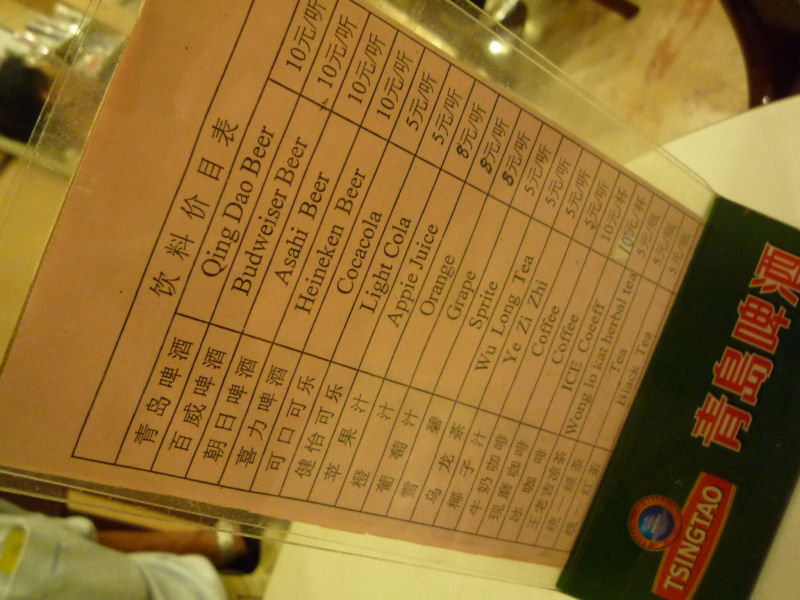 饮料价目表
青岛啤酒 Qing Dao Beer 10元/听
百威啤酒 Budweiser Beer 10元/听
朝日啤酒 Asahi Beer 10元/听
喜力啤酒 Heineken Beer 10元/听
可口可乐 Cocacola 5元/听
健怡可乐 Light Cola 5元/听
苹果汁 Appie Juice 8元/听
橙汁 Orange 8元/听
葡萄汁 Grape 8元/听
雪碧 Sprite 5元/听
乌龙茶 Wu Long Tea 5元/听
椰子汁 Ye Zi Zhi 5元/听
牛奶咖啡 Coffee 5元/听
现磨咖啡 Coffee 10元/杯
冰咖啡 ICE Coeeff 10元/杯
王老吉凉茶 Wong lo kat herbal tea 5元/瓶
统一绿茶 Tea 5元/瓶
统一红茶 Black Tea 5元/瓶
TSINGTAO 青島啤酒